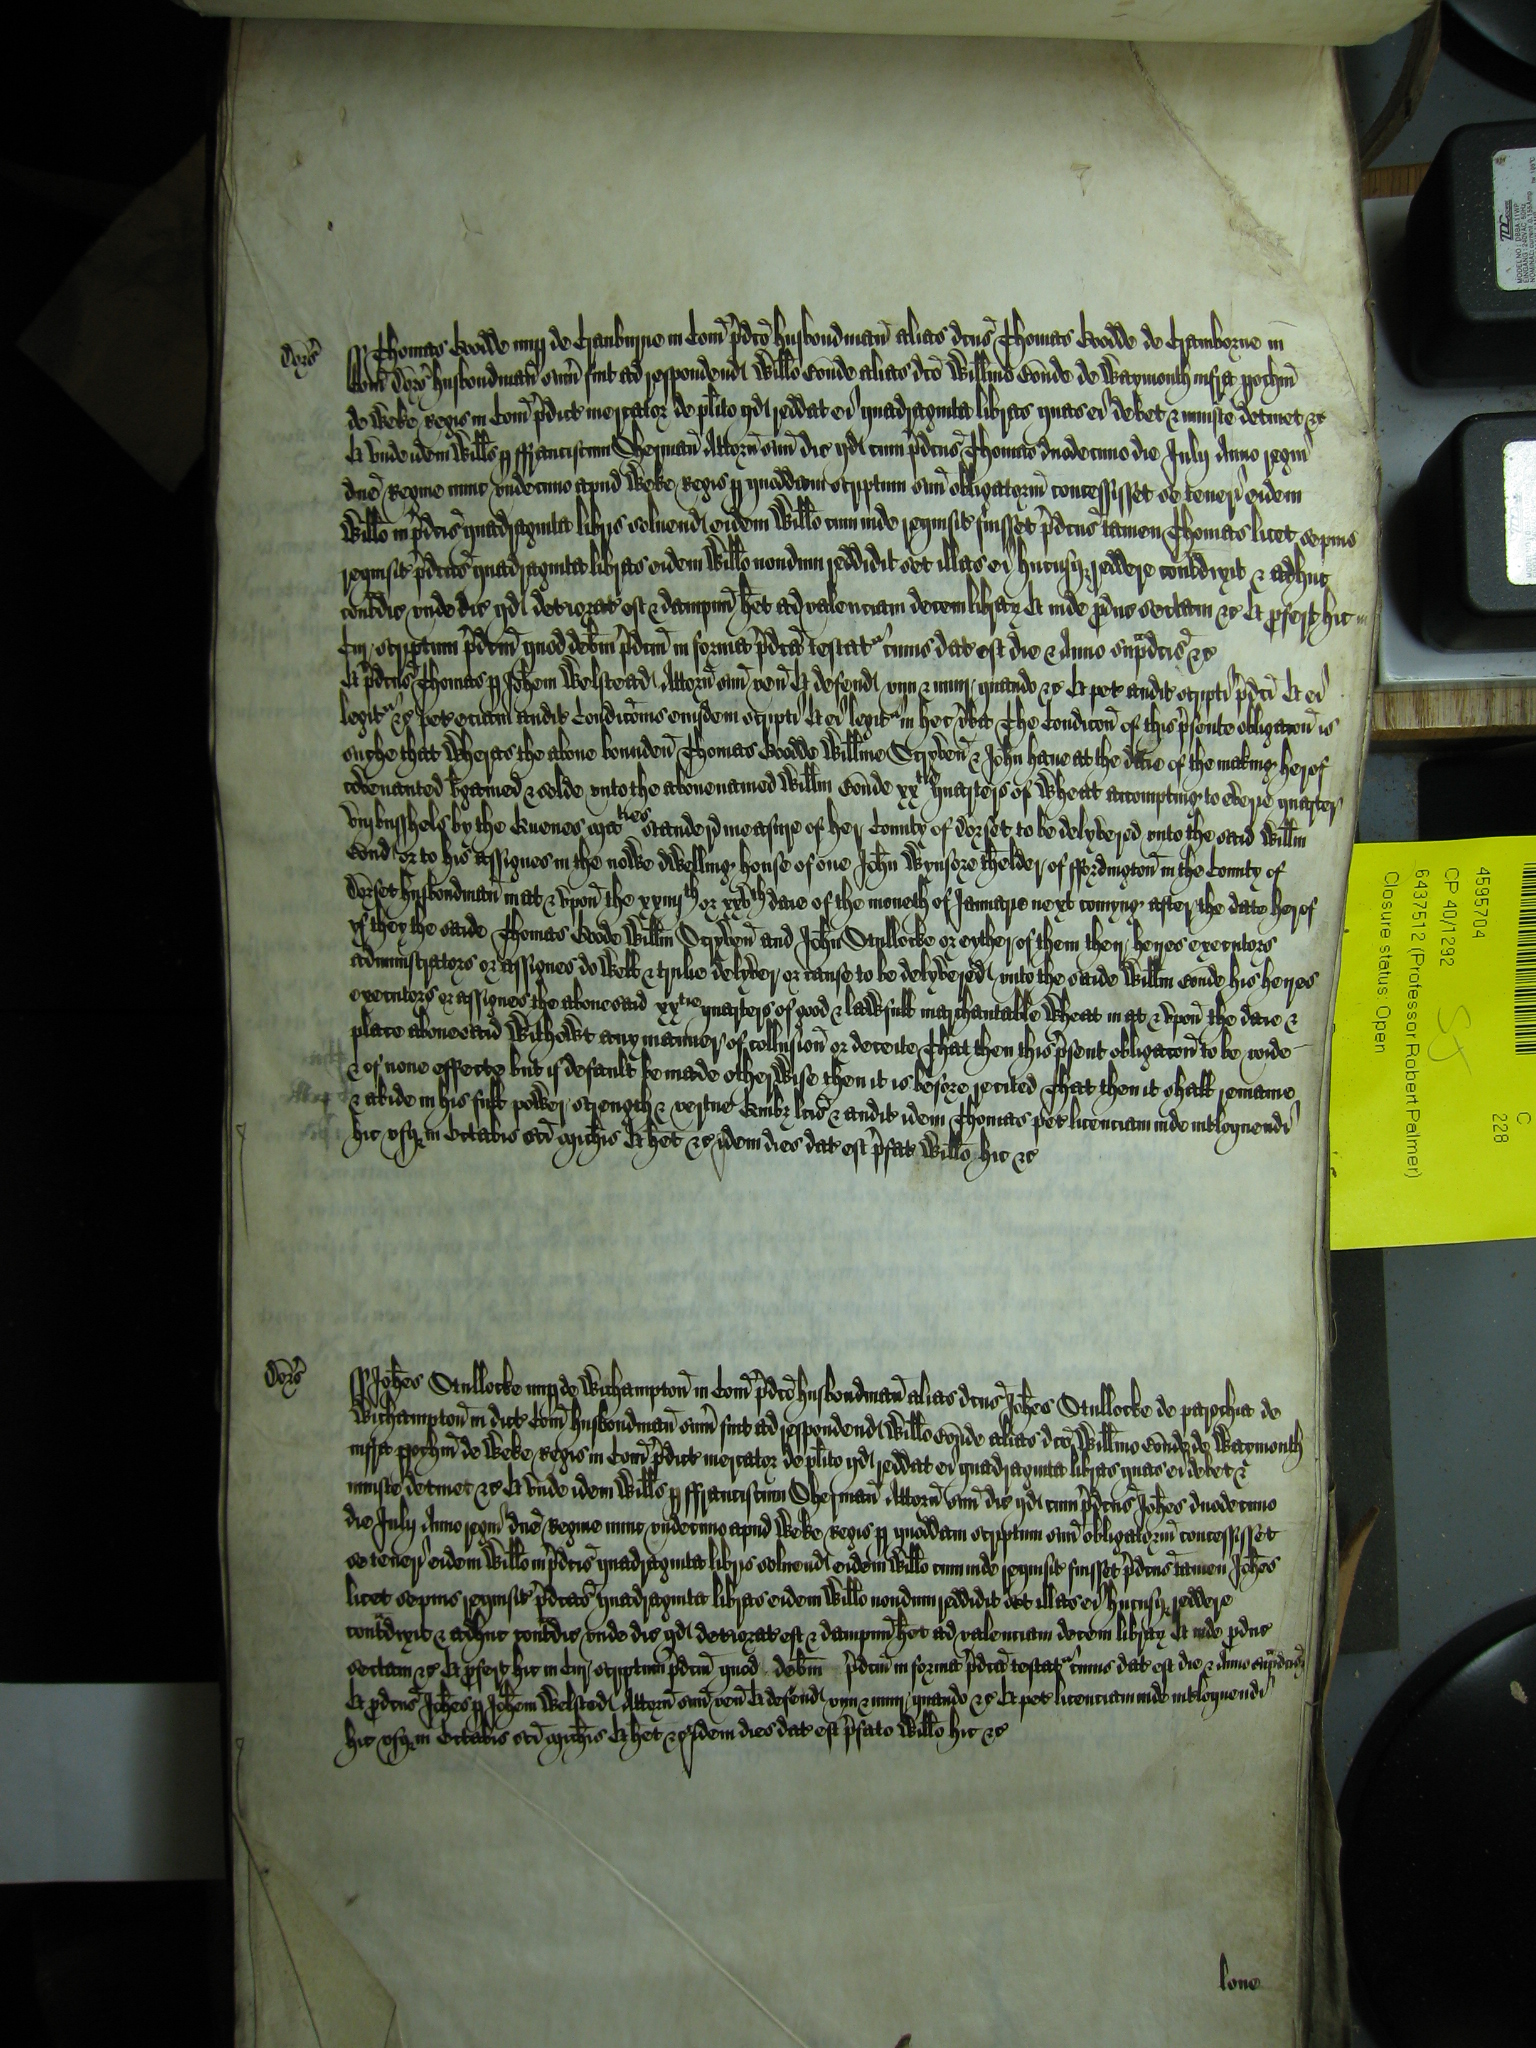 Dors̄ ss Thomas Goodde nup de Cranburne in Com̄ p̄dco husbondman̄ alias dcus Thomas Goodde de Cramborne in
Com̄ Dors̄ husbondman̄ sum̄ fuit ad respondend Willo Gonde alias dco Willmo Gonde de Waymouth infra pochiā
de Weke Regis in Com̄ p̄dict mercator de plito qd reddat ei quadraginta libras quas ei debet & iniuste detinet &c
Et unde idem Wills p ffranciscum Sherman Attorn̄ suū dic qd cum p̄dcus Thomas duodecimo die Julij Anno regni
dn̄e Regine nunc undecimo apud Weke Regis p quoddam scriptum suū obligatoriū concessisset se teneri eidem
Willo in p̄dcis quadraginta libris solvend eidem Willo cum inde requisit fuisset p̄dcus tamen Thomas licet sepius
requisit p̄dcas quadraginta libras eidem Willo nondum reddidit set illas ei hucusq reddere contdixit & adhuc
contdic unde dic qd deteriorat est & dampnū het ad valenciam decem librar Et inde produc sectam &c Et pfert hic in
Cur scriptum p̄dcm̄ quod debm̄ p̄dcm̄ in forma p̄dca testat cuius dat est die & Anno sup̄dcis &c
Et p̄dcus Thomas p Johem Welstead Attorn̄ suū ven̄ Et defend vim & iniur quando &c Et pet audit scripti p̄dci Et ei
legit &c pet eciam audit Condicōnis eiusdem scripti Et ei legit in hec v̄ba The Condicōn of this p̄sente obligacōn is
suche that Wheras the above bounden Thomas Goodde Willme Scryven & John have at the daie of the making herof
covenanted bgamed & solde unto the abovenamed Willm Gonde xxtie quarters of Wheat accompting to everie quarter
viij busshels by the Quenes Maties standerd measure of her County of Dorset to be delyvered unto the said Willm
Gond or to his assignes in the nowe dwelling house of one John Wynsore thelder of ffordington in the County of
Dorset husbondman in at & upon the xxiiijth or xxvth daie of the moneth of Januarie next comyng after the date herof
yf they the saide Thomas Goode Willm Scryven and John Stullocke or eyther of them ther heyres executors
administrators or assignes do well & trulie delyver or cause to be delyvered unto the saide Willm Gonde his heyres
executors or assignes the abovesaid xxtie quarters of good & lawfull marchantable Wheat in at & upon the daie &
place abovesaid Without any manner of collusion or deceite That then this p̄sent obligacōn to be voide
& of none effecte but if default be made otherwise then it is before recited That then it shall remaine
& abide in his full power strength & vertue Quibz lcis & audit idem Thomas pet licenciam inde intloquendi
hic usq in Octabis sci Michis Et het &c idem dies dat est p̄fat Willo hic &c
Dors̄ ss Johes Stullocke nup de Wichampton in Com̄ p̄dco husbondman̄ alias dcus Johes Stullocke de parochia de
Wichampton in dict Com̄ husbondman̄ sum̄ fuit ad respondend Willo Gonde alias dco Willmo Gonde de Waymouth
infra pochiā de Weke Regis in Com̄ p̄dict mercator de plito qd reddat ei quadraginta libras quas ei debet &
iniuste detinet &c Et unde idem Wills p ffranciscum Sherman Attorn̄ suū dic qd cum p̄dcus Johes duodecimo
die Julij Anno regni dn̄e Regine nunc undecimo apud Weke Regis p quoddam scriptum suū obligatoriū concessisset
se teneri eidem Willo in p̄dcis quadraginta libris solvend eidem Willo cum inde requisit fuisset p̄dcus tamen Johes
licet sepius requisit p̄dcas quadraginta libras eidem Willo nondum reddidit set illas ei hucusq reddere
contdixit & adhuc contdic unde dic qd deteriorat est & dampnū het ad valenciam decem librar Et inde produc
sectam &c Et pfert hic in Cur scriptum p̄dcm̄ quod debm̄ p̄dcm̄ in forma p̄dca testat cuius dat est die & Anno sup̄dcis
Et p̄dcus Johes p Johem Welsted Attorn̄ suū ven̄ Et defend vim & iniur quando &c Et pet licenciam inde intloquendi
hic usq in Octabis sci Michis Et het &c idem dies dat est p̄fato Willo hic &c
lone
4595704
CP 40/1292
6437512 (Professor Robert Palmer)
Closure status: Open
C
228